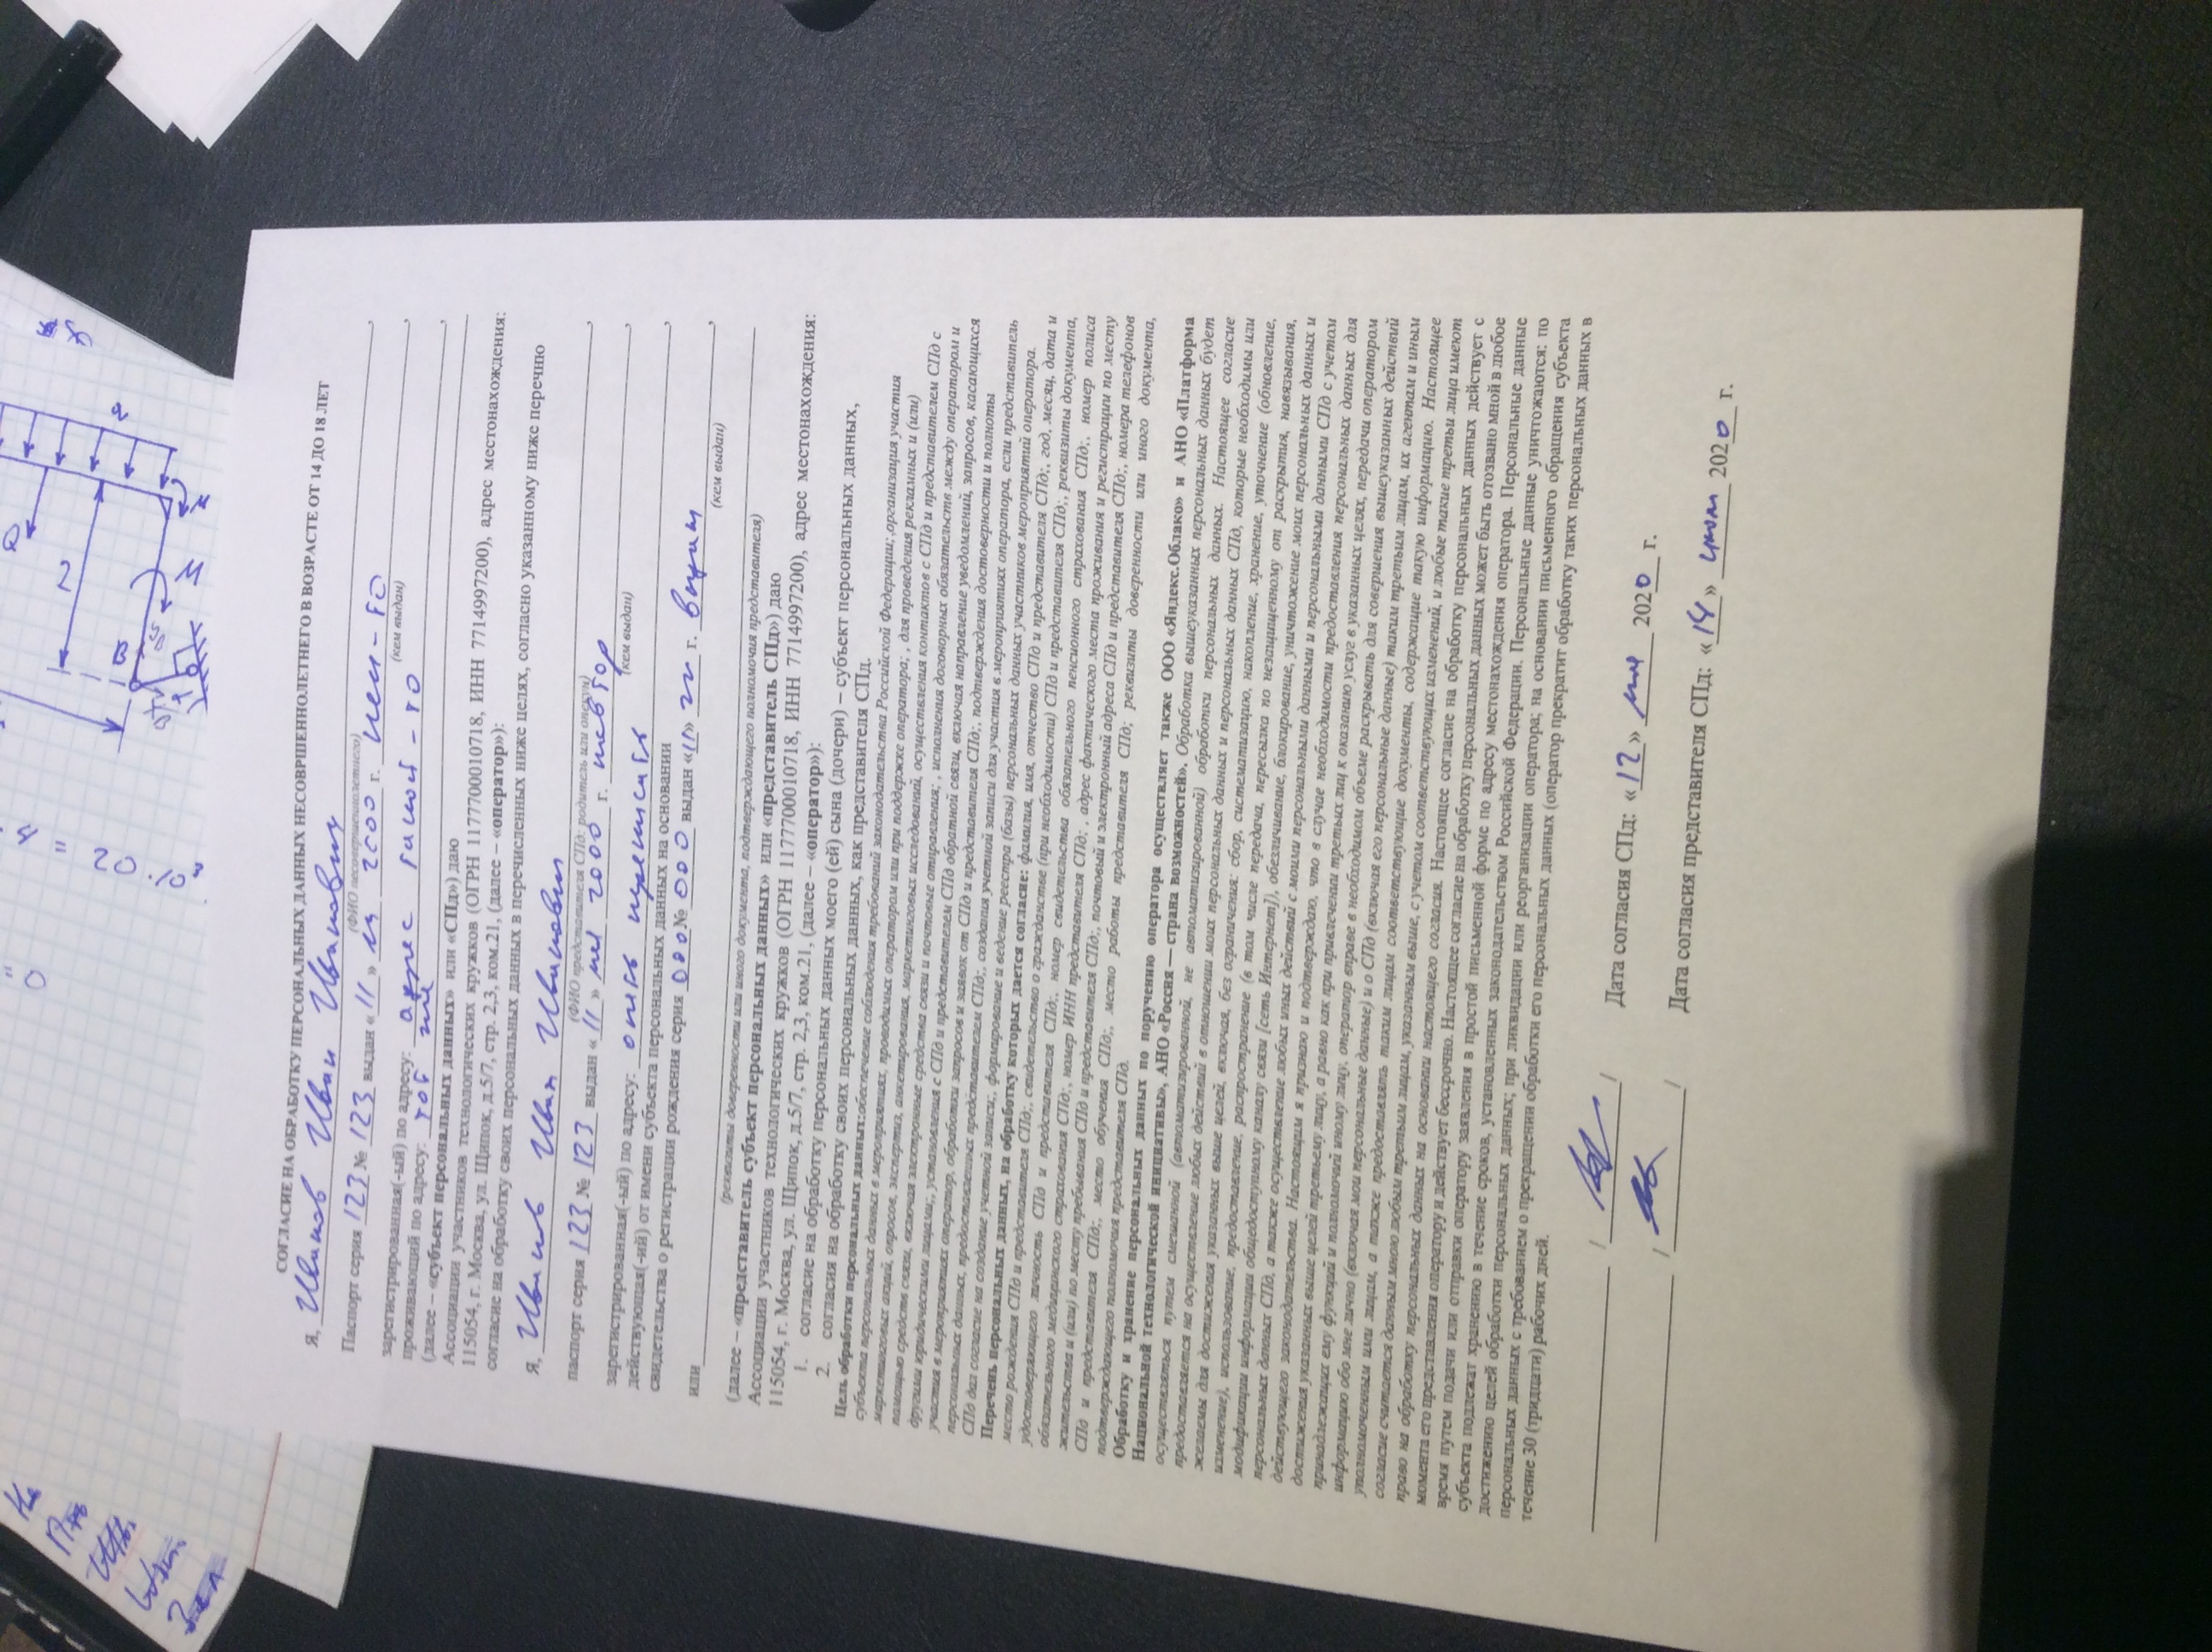 = 0
4 = 20·10³
Q
2
B
M
СОГЛАСИЕ НА ОБРАБОТКУ ПЕРСОНАЛЬНЫХ ДАННЫХ НЕСОВРШЕННОЛЕТНЕГО В ВОЗРАСТЕ ОТ 14 ДО 18 ЛЕТ
Я, Иванов Иван Иванович,
(ФИО несовершеннолетнего)
Паспорт серия 123 № 123 выдан «11» 2000 г. кем-то,
(кем выдан)
зарегистрированная(-ый) по адресу: адрес такой-то,
проживающий по адресу: тот же
(далее – «субъект персональных данных» или «СПд») даю
Ассоциации участников технологических кружков (ОГРН 1177700010718, ИНН 7714997200), адрес местонахождения:
115054, г. Москва, ул. Щипок, д.5/7, стр. 2,3, ком.21, (далее – «оператор»):
согласие на обработку своих персональных данных в перечисленных ниже целях, согласно указанному ниже перечню
я, Иванов Иван Иванович,
(ФИО представителя СПд: родитель или опекун)
паспорт серия 123 № 123 выдан «11» 2000 г. повтор,
(кем выдан)
зарегистрированный(-ый) по адресу: опять переписать,
действующая(-ий) от имени субъекта персональных данных на основании
свидетельства о регистрации рождения серия 000 № 000 выдан «11» г.,
(кем выдан)
или
(реквизиты доверенности или иного документа, подтверждающего полномочия представителя)
(далее – «представитель субъект персональных данных» или «представитель СПд») даю
Ассоциации участников технологических кружков (ОГРН 1177700010718, ИНН 7714997200), адрес местонахождения:
115054, г. Москва, ул. Щипок, д.5/7, стр. 2,3, ком.21, (далее – «оператор»):
1. согласие на обработку персональных данных моего (ей) сына (дочери) – субъект персональных данных,
2. согласия на обработку своих персональных данных, как представителя СПд.
Цель обработки персональных данных:обеспечение соблюдения требований законодательства Российской Федерации; ,организация участия
субъекта персональных данных в мероприятиях, проводимых оператором или при поддержке оператора; , для проведения рекламных и (или)
маркетинговых акций, опросов, экспертиз, анкетирования, маркетинговых исследований, осуществления контактов с СПд и представителем СПд с
помощью средств связи, включая электронные средства связи и почтовые отправления; , исполнения договорных обязательств между оператором и
другими юридическими лицами;, установления с СПд и представителем СПд обратной связи, включая направление уведомлений, запросов, касающихся
участия в мероприятиях оператор, обработки запросов и заявок от СПд и представителя СПд;, подтверждения достоверности и полноты
персональных данных, предоставленных представителем СПд;, создания учетной записи для участия в мероприятиях оператора, если представитель
СПд дал согласие на создание учетной записи;, формирование и ведение реестра (базы) персональных данных участников мероприятий оператора.
Перечень персональных данных, на обработку которых дается согласие: фамилия, имя, отчество СПд и представителя СПд;, год, месяц, дата и
место рождения СПд и представителя СПд;, свидетельство о гражданстве (при необходимости) СПд и представителя СПд;, реквизиты документа,
удостоверяющего личность СПд и представителя СПд;, номер свидетельства обязательного пенсионного страхования СПд;, номер полиса
обязательного медицинского страхования СПд;, номер ИНН представителя СПд; , адрес фактического места проживания и регистрации по месту
жительства и (или) по месту пребывания СПд и представителя СПд;, почтовый и электронный адреса СПд и представителя СПд;, номера телефонов
СПд и представителя СПд;, место обучения СПд;, место работы представителя СПд; реквизиты доверенности или иного документа,
подтверждающего полномочия представителя СПд.
Обработку и хранение персональных данных по поручению оператора осуществляет также ООО «Яндекс.Облако» и АНО «Платформа
Национальной технологической инициативы», АНО «Россия — страна возможностей». Обработка вышеуказанных персональных данных будет
осуществляться путем смешанной (автоматизированной, не автоматизированной) обработки персональных данных. Настоящее согласие
предоставляется на осуществление любых действий в отношении моих персональных данных и персональных данных СПд, которые необходимы или
желаемы для достижения указанных выше целей, включая, без ограничения: сбор, систематизацию, накопление, хранение, уточнение (обновление,
изменение), использование, предоставление, распространение (в том числе передача, пересылка по незащищенному от раскрытия, навязывания,
модификации информации общедоступному каналу связи [сеть Интернет]), обезличивание, блокирование, уничтожение моих персональных данных и
персональных данных СПд, а также осуществление любых иных действий с моими персональными данными и персональными данными СПд с учетом
действующего законодательства. Настоящим я признаю и подтверждаю, что в случае необходимости предоставления персональных данных для
достижения указанных выше целей третьему лицу, а равно как при привлечении третьих лиц к оказанию услуг в указанных целях, передачи оператором
принадлежащих ему функций и полномочий иному лицу, оператор вправе в необходимом объеме раскрывать для совершения вышеуказанных действий
информацию обо мне лично (включая мои персональные данные) и о СПд (включая его персональные данные) таким третьим лицам, их агентам и иным
уполномоченным ими лицам, а также предоставлять таким лицам соответствующие документы, содержащие такую информацию. Настоящее
согласие считается данным мною любым третьим лицам, указанным выше, с учетом соответствующих изменений, и любые такие третьи лица имеют
право на обработку персональных данных на основании настоящего согласия. Настоящее согласие на обработку персональных данных действует с
момента его представления оператору и действует бессрочно. Настоящее согласие на обработку персональных данных может быть отозвано мной в любое
время путем подачи или отправки оператору заявления в простой письменной форме по адресу местонахождения оператора. Персональные данные
субъекта подлежат хранению в течение сроков, установленных законодательством Российской Федерации. Персональные данные уничтожаются: по
достижению целей обработки персональных данных; при ликвидации или реорганизации оператора; на основании письменного обращения субъекта
персональных данных с требованием о прекращении обработки его персональных данных (оператор прекратит обработку таких персональных данных в
течение 30 (тридцати) рабочих дней.
/ / Дата согласия СПд: «12» мая 2020 г.
/ / Дата согласия представителя СПд: «14» июня 2020 г.